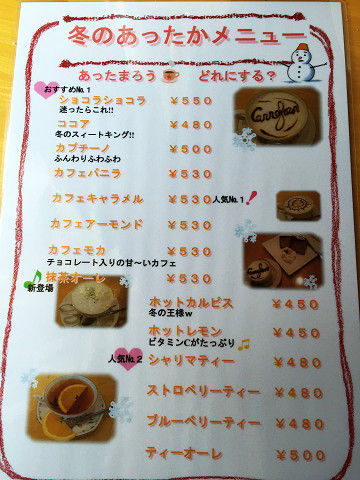 冬のあったかメニュー
あったまろう どれにする？
おすすめNo.1
ショコラショコラ ￥550
迷ったらこれ!!
ココア ￥480
冬のスィートキング!!
カプチーノ ￥500
ふんわりふわふわ
カフェバニラ ￥530
カフェキャラメル ￥530
人気No.1!
カフェアーモンド ￥530
カフェモカ ￥530
チョコレート入りの甘～いカフェ
抹茶オーレ ￥530
新登場
ホットカルピス ￥450
冬の王様w
ホットレモン ￥450
ビタミンCがたっぷり
人気No.2
シャリマティー ￥480
ストロベリーティー ￥480
ブルーベリーティー ￥480
ティーオーレ ￥500